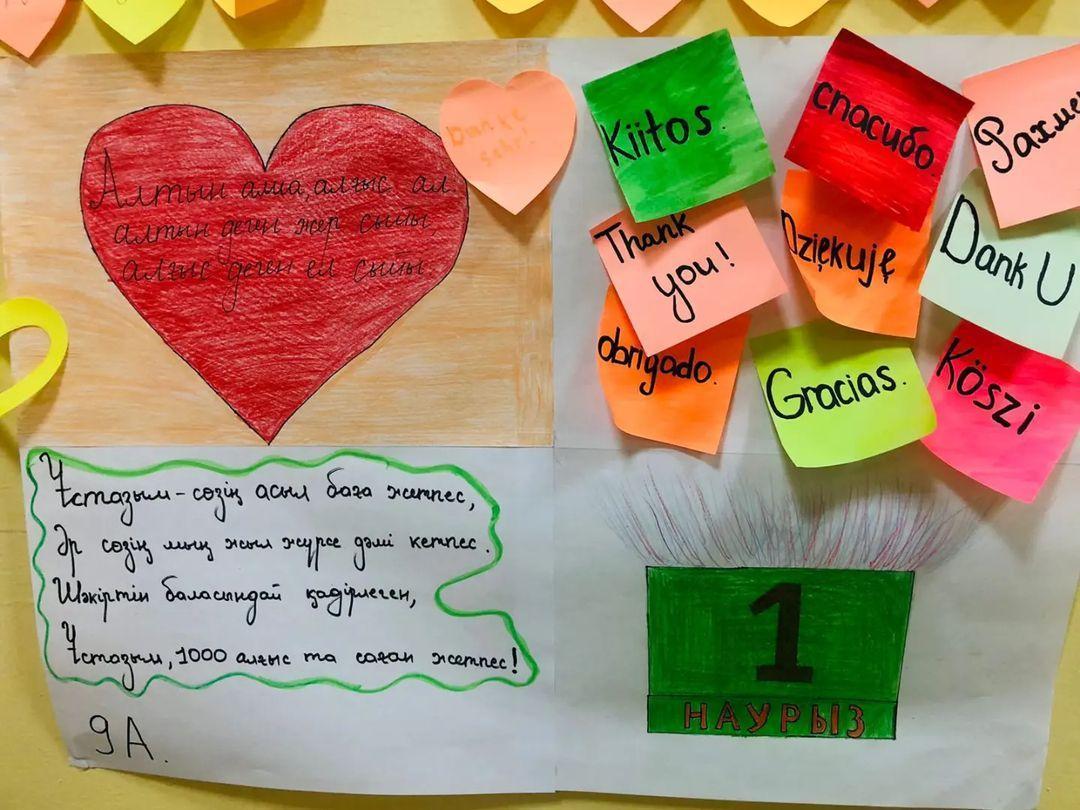 Алтын алма, алғыс ал
алтын деген жер сыйы,
алғыс деген ел сыйы
Danke
sehr!
Kiitos.
спасибо.
Рахме
Thank
you!
Dziękuję
Dank U
obrigado.
Gracias.
Köszi
Ұстазым-сөзің асыл баға жетпес,
Әр сөзің мың жыл жүрсе дәмі кетпес.
Шәкіртін баласындай қадірлеген,
Ұстазым, 1000 алғыс та саған жетпес!
9 А.
1
НАУРЫЗ